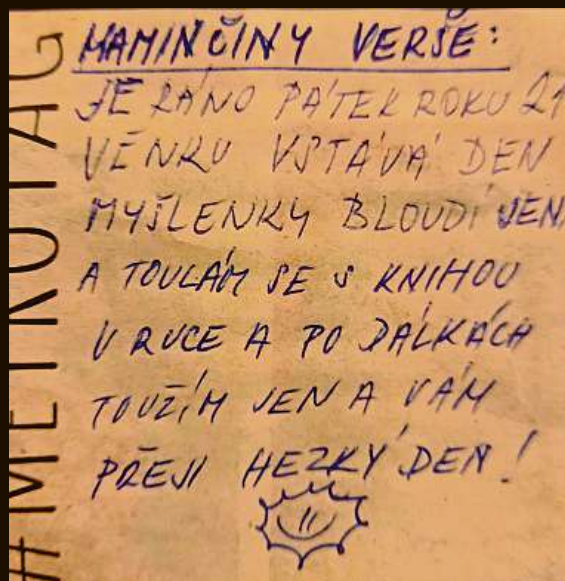 #METROTAG
MAMINČINY VERŠE:
JE RÁNO PÁTEK ROKU 21
VENKU VSTÁVÁ DEN
MYŠLENKY BLOUDÍ JEN
A TOULÁM SE S KNIHOU
V RUCE A PO DÁLKÁCH
TOUŽÍM JEN A VÁM
PŘEJI HEZKÝ DEN!